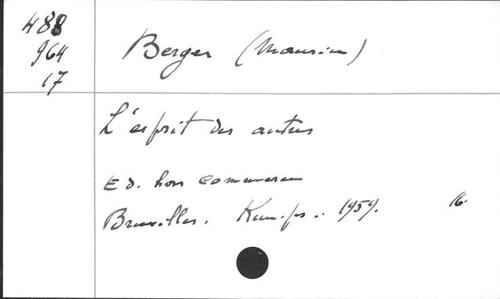 488
964
17
Berger (Maurice)
L'esprit des autres
Ed. hors commerce
Bruxelles. 1959. 16.